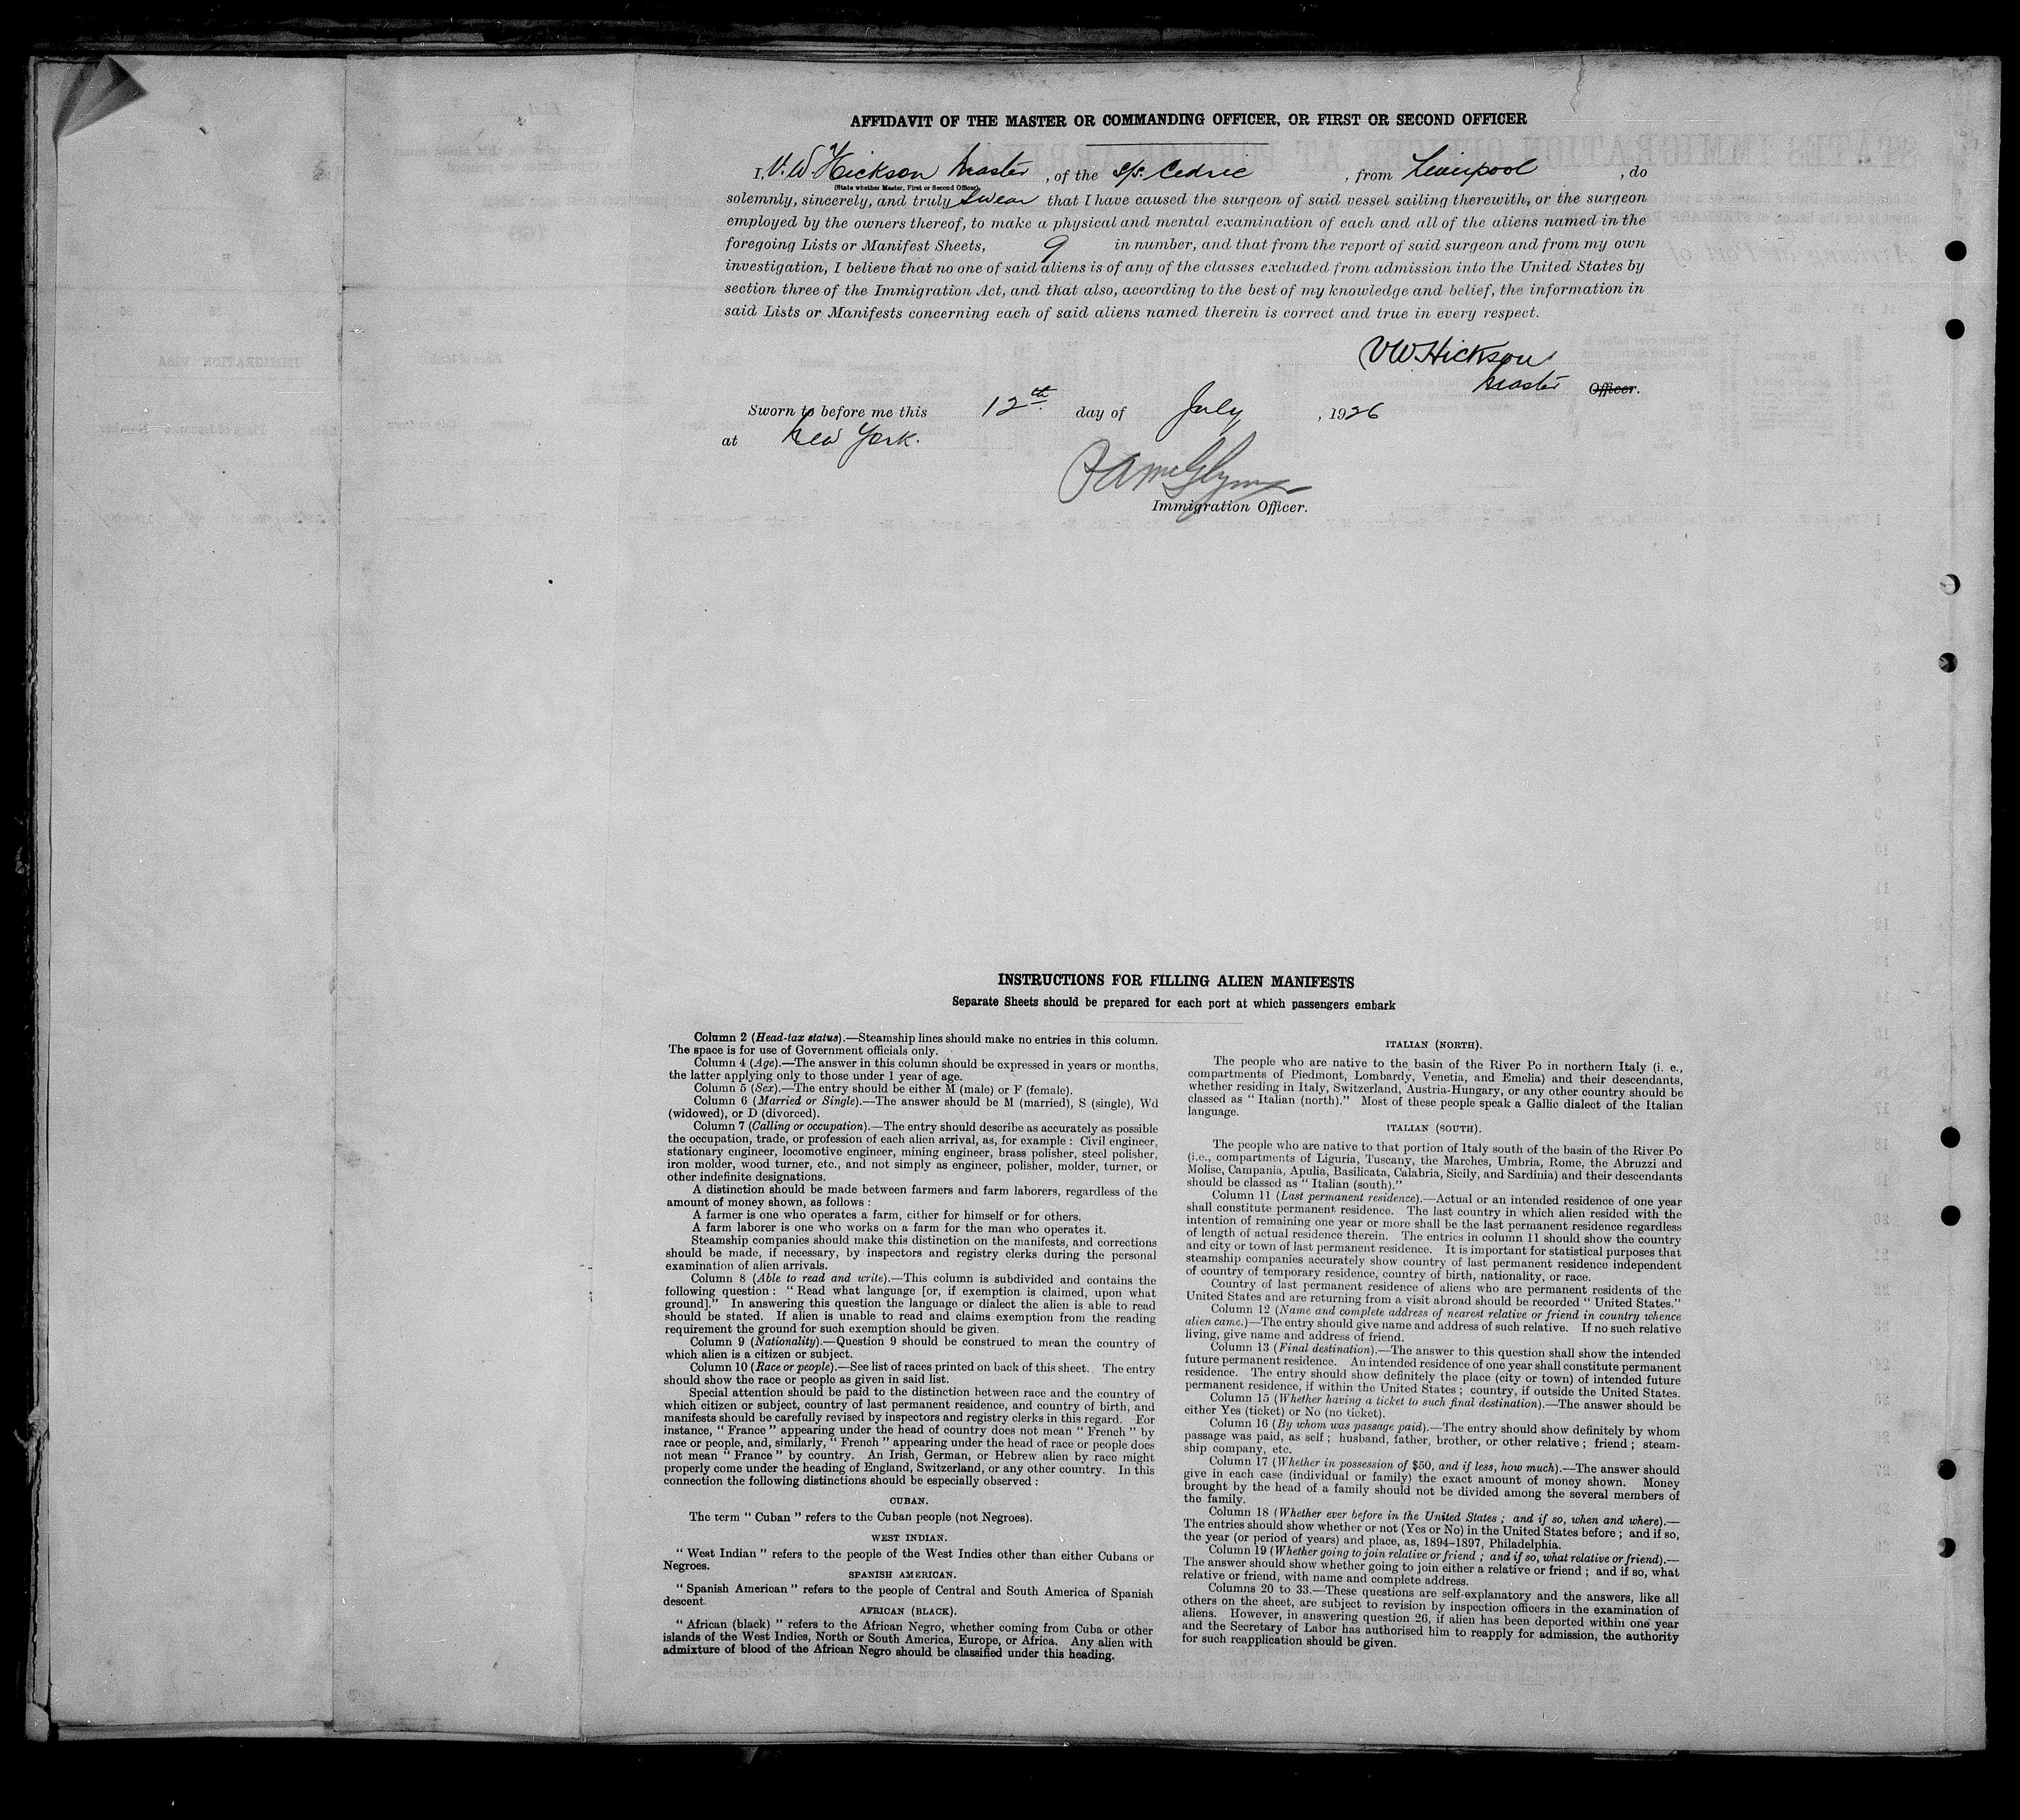 AFFIDAVIT OF THE MASTER OR COMMANDING OFFICER, OR FIRST OR SECOND OFFICER
I, V. W. Hickson Master, of the S/S. Cedric, from Liverpool, do
(State whether Master, First or Second Officer)
solemnly, sincerely, and truly swear that I have caused the surgeon of said vessel sailing therewith, or the surgeon
employed by the owners thereof, to make a physical and mental examination of each and all of the aliens named in the
foregoing Lists or Manifest Sheets, 9 in number, and that from the report of said surgeon and from my own
investigation, I believe that no one of said aliens is of any of the classes excluded from admission into the United States by
section three of the Immigration Act, and that also, according to the best of my knowledge and belief, the information in
said Lists or Manifests concerning each of said aliens named therein is correct and true in every respect.
VW Hickson
Master Officer.
Sworn to before me this 12th day of July, 1926
at New York.
Immigration Officer.
INSTRUCTIONS FOR FILLING ALIEN MANIFESTS
Separate Sheets should be prepared for each port at which passengers embark
Column 2 (Head-tax status).—Steamship lines should make no entries in this column.
The space is for use of Government officials only.
Column 4 (Age).—The answer in this column should be expressed in years or months,
the latter applying only to those under 1 year of age.
Column 5 (Sex).—The entry should be either M (male) or F (female).
Column 6 (Married or Single).—The answer should be M (married), S (single), Wd
(widowed), or D (divorced).
Column 7 (Calling or occupation).—The entry should describe as accurately as possible
the occupation, trade, or profession of each alien arrival, as, for example : Civil engineer,
stationary engineer, locomotive engineer, mining engineer, brass polisher, steel polisher,
iron molder, wood turner, etc., and not simply as engineer, polisher, molder, turner, or
other indefinite designations.
A distinction should be made between farmers and farm laborers, regardless of the
amount of money shown, as follows :
A farmer is one who operates a farm, either for himself or for others.
A farm laborer is one who works on a farm for the man who operates it.
Steamship companies should make this distinction on the manifests, and corrections
should be made, if necessary, by inspectors and registry clerks during the personal
examination of alien arrivals.
Column 8 (Able to read and write).—This column is subdivided and contains the
following question : “ Read what language [or, if exemption is claimed, upon what
ground].” In answering this question the language or dialect the alien is able to read
should be stated. If alien is unable to read and claims exemption from the reading
requirement the ground for such exemption should be given.
Column 9 (Nationality).—Question 9 should be construed to mean the country of
which alien is a citizen or subject.
Column 10 (Race or people).—See list of races printed on back of this sheet. The entry
should show the race or people as given in said list.
Special attention should be paid to the distinction between race and the country of
which citizen or subject, country of last permanent residence, and country of birth, and
manifests should be carefully revised by inspectors and registry clerks in this regard. For
instance, “ France ” appearing under the head of country does not mean “ French ” by
race or people, and, similarly, “ French ” appearing under the head of race or people does
not mean “ France ” by country. An Irish, German, or Hebrew alien by race might
properly come under the heading of England, Switzerland, or any other country. In this
connection the following distinctions should be especially observed :
CUBAN.
The term “ Cuban ” refers to the Cuban people (not Negroes).
WEST INDIAN.
“ West Indian ” refers to the people of the West Indies other than either Cubans or
Negroes.
SPANISH AMERICAN.
“ Spanish American ” refers to the people of Central and South America of Spanish
descent.
AFRICAN (BLACK).
“ African (black) ” refers to the African Negro, whether coming from Cuba or other
islands of the West Indies, North or South America, Europe, or Africa. Any alien with
admixture of blood of the African Negro should be classified under this heading.
ITALIAN (NORTH).
The people who are native to the basin of the River Po in northern Italy (i. e.,
compartments of Piedmont, Lombardy, Venetia, and Emelia) and their descendants,
whether residing in Italy, Switzerland, Austria-Hungary, or any other country should be
classed as “ Italian (north).” Most of these people speak a Gallic dialect of the Italian
language.
ITALIAN (SOUTH).
The people who are native to that portion of Italy south of the basin of the River Po
(i.e., compartments of Liguria, Tuscany, the Marches, Umbria, Rome, the Abruzzi and
Molise, Campania, Apulia, Basilicata, Calabria, Sicily, and Sardinia) and their descendants
should be classed as “ Italian (south).”
Column 11 (Last permanent residence).—Actual or an intended residence of one year
shall constitute permanent residence. The last country in which alien resided with the
intention of remaining one year or more shall be the last permanent residence regardless
of length of actual residence therein. The entries in column 11 should show the country
and city or town of last permanent residence. It is important for statistical purposes that
steamship companies accurately show country of last permanent residence independent
of country of temporary residence, country of birth, nationality, or race.
Country of last permanent residence of aliens who are permanent residents of the
United States and are returning from a visit abroad should be recorded “ United States.”
Column 12 (Name and complete address of nearest relative or friend in country whence
alien came.)—The entry should give name and address of such relative. If no such relative
living, give name and address of friend.
Column 13 (Final destination).—The answer to this question shall show the intended
future permanent residence. An intended residence of one year shall constitute permanent
residence. The entry should show definitely the place (city or town) of intended future
permanent residence, if within the United States ; country, if outside the United States.
Column 15 (Whether having a ticket to such final destination).—The answer should be
either Yes (ticket) or No (no ticket).
Column 16 (By whom was passage paid).—The entry should show definitely by whom
passage was paid, as self ; husband, father, brother, or other relative ; friend ; steam-
ship company, etc.
Column 17 (Whether in possession of $50, and if less, how much).—The answer should
give in each case (individual or family) the exact amount of money shown. Money
brought by the head of a family should not be divided among the several members of
the family.
Column 18 (Whether ever before in the United States ; and if so, when and where).—
The entries should show whether or not (Yes or No) in the United States before ; and if so,
the year (or period of years) and place, as, 1894–1897, Philadelphia.
Column 19 (Whether going to join relative or friend ; and if so, what relative or friend).—
The answer should show whether going to join either a relative or friend ; and if so, what
relative or friend, with name and complete address.
Columns 20 to 33.—These questions are self-explanatory and the answers, like all
others on the sheet, are subject to revision by inspection officers in the examination of
aliens. However, in answering question 26, if alien has been deported within one year
and the Secretary of Labor has authorised him to reapply for admission, the authority
for such reapplication should be given.